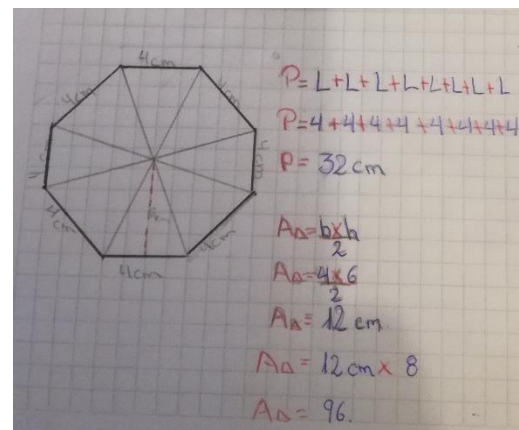 4cm
4cm
4cm
4cm
4cm
4cm
4cm
P= L+L+L+L+L+L+L+L
P=4+4+4+4+4+4+4+4
P= 32 cm
A△=bxh
2
A△=4x6
2
A△= 12 cm.
A△= 12 cm x 8
A△= 96.